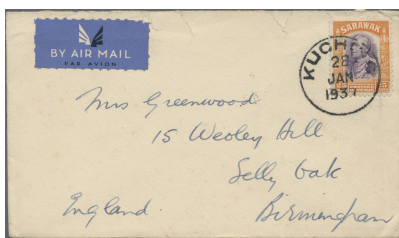 BY AIR MAIL
PAR AVION
SARAWAK
KUCHING
28
JAN
1937
Mrs Greenwood
15 Weoley Hill
Selly Oak
England.
Birmingham